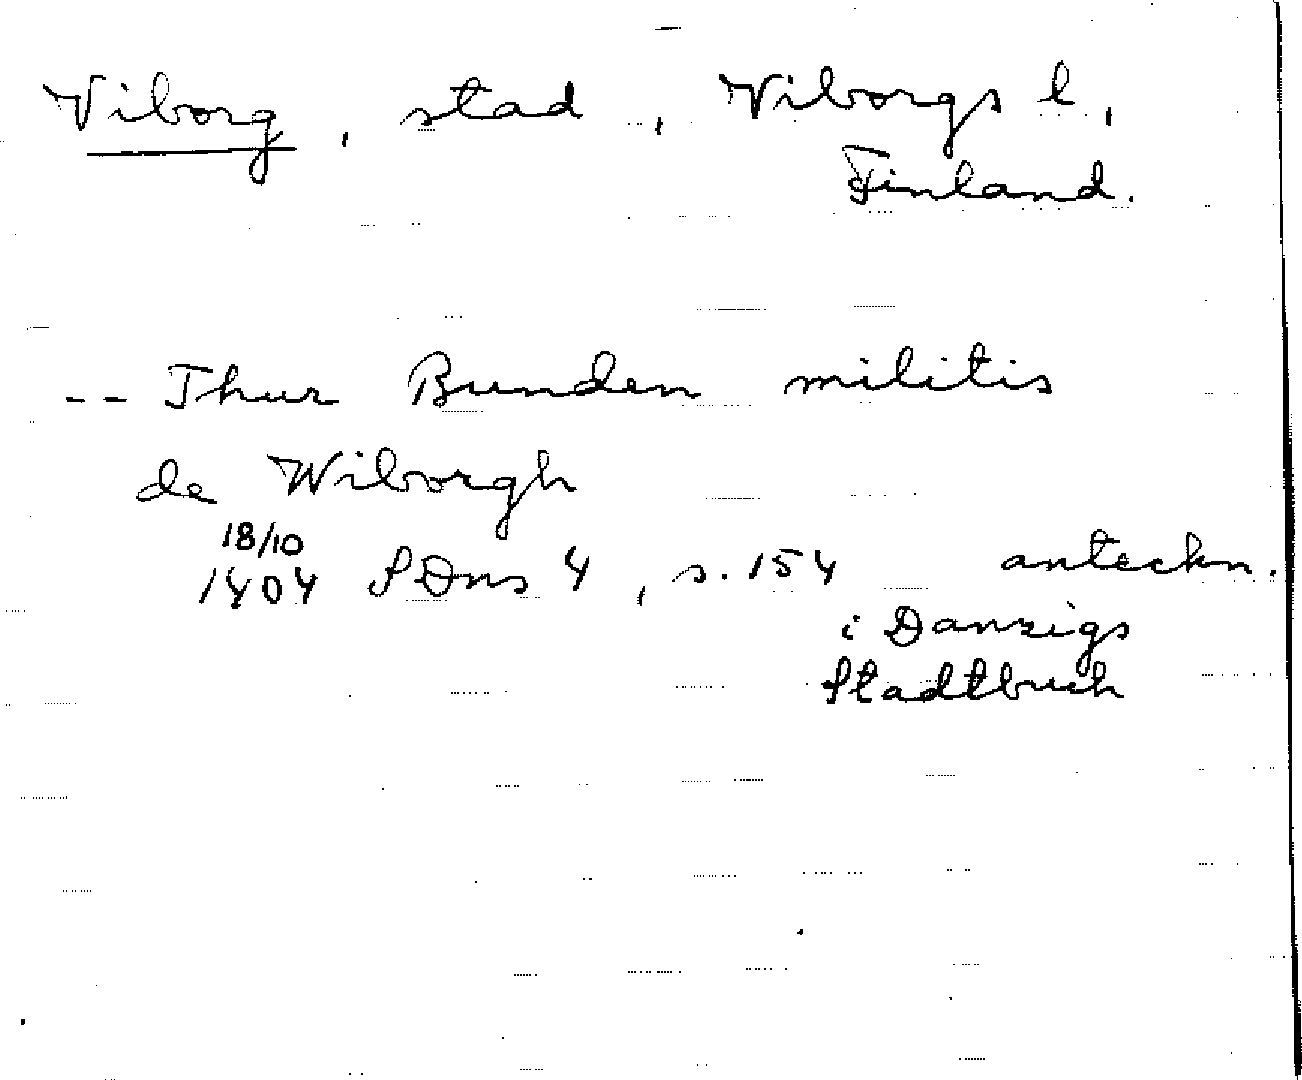 Viborg, stad, Viborgs l,
Finland.
-- Thur Bunden militis
de Wiborgh
18/10
1404 SDns 4, s. 154 anteckn.
i Danzigs
Stadtbuch